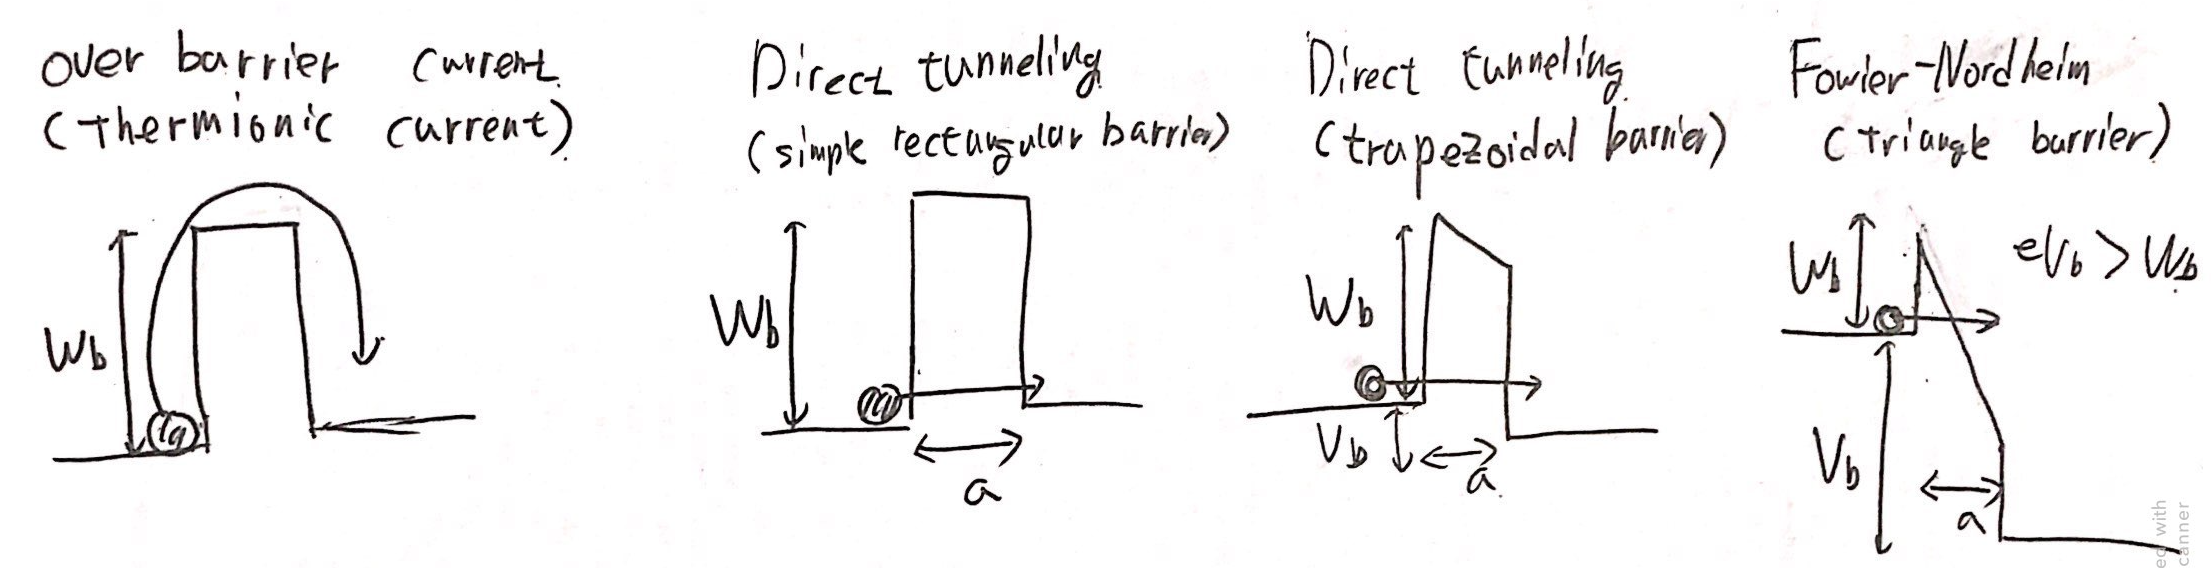 over barrier current
(thermionic current)
Wb
Direct tunneling
(simple rectangular barrier)
Wb
a
Direct tunneling
(trapezoidal barrier)
Wb
Vb
a
Fowier-Nordheim
(triangle barrier)
Wb
eVb > Wb
Vb
a
ed with
canner